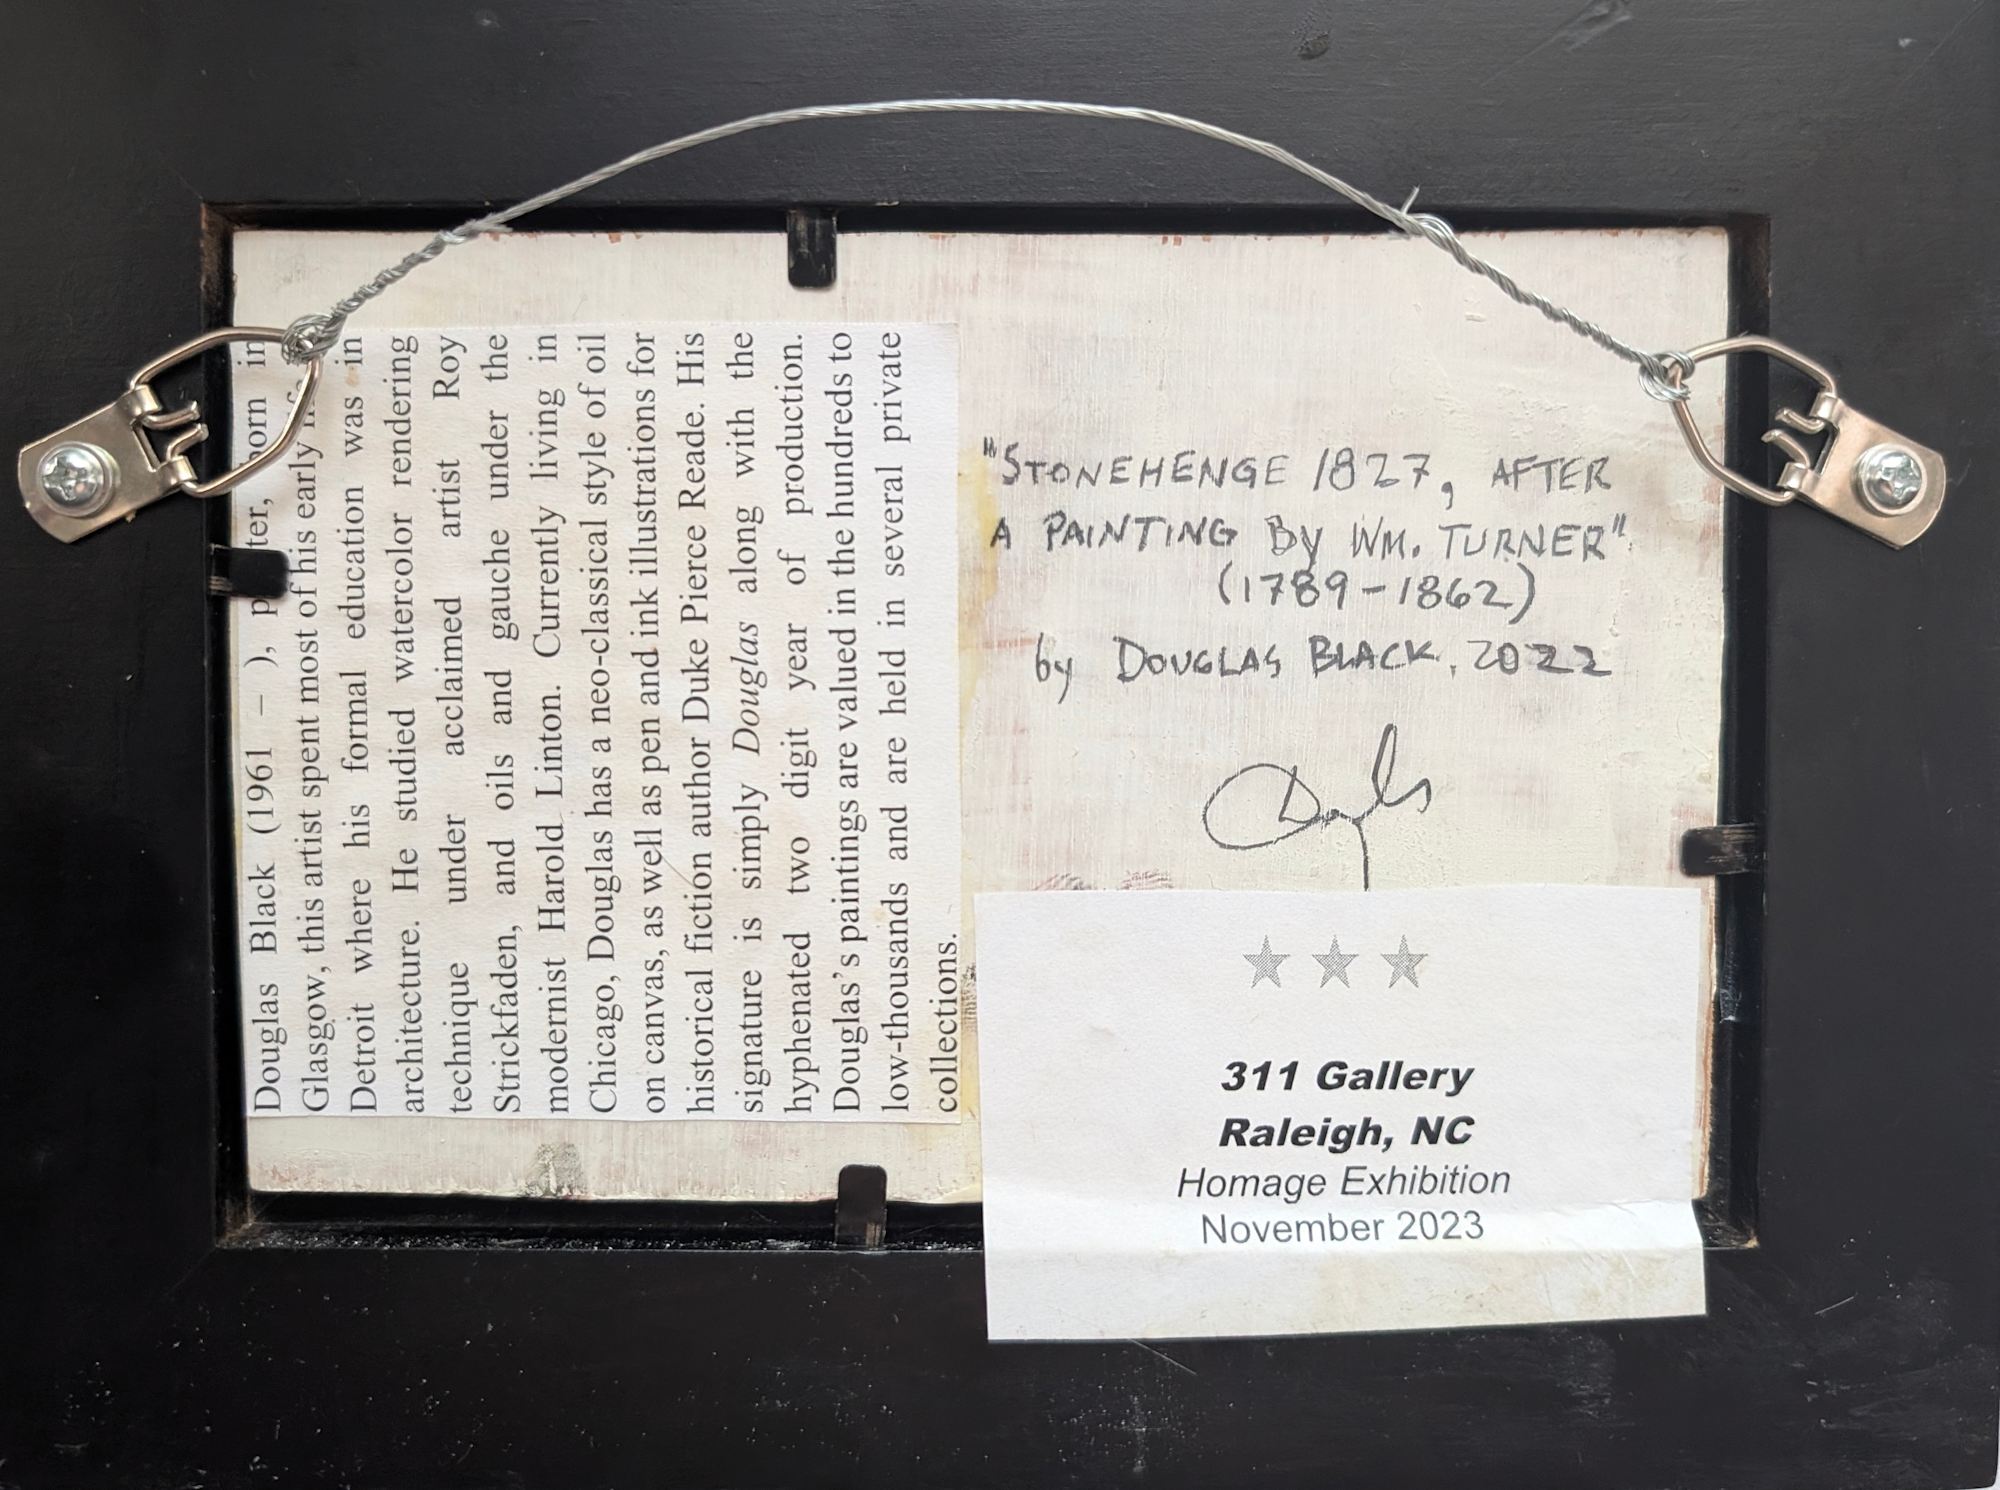 Douglas Black (1961 – ), born in
Glasgow, this artist spent most of his early
Detroit where his formal education was in
architecture. He studied watercolor rendering
technique under acclaimed artist Roy
Strickfaden, and oils and gauche under the
modernist Harold Linton. Currently living in
Chicago, Douglas has a neo-classical style of oil
on canvas, as well as pen and ink illustrations for
historical fiction author Duke Pierce Reade. His
signature is simply Douglas along with the
hyphenated two digit year of production.
Douglas's paintings are valued in the hundreds to
low-thousands and are held in several private
collections.
"STONEHENGE 1827, AFTER
A PAINTING By WM. TURNER"
(1789-1862)
by DOUGLAS BLACK, 2022
Douglas
311 Gallery
Raleigh, NC
Homage Exhibition
November 2023